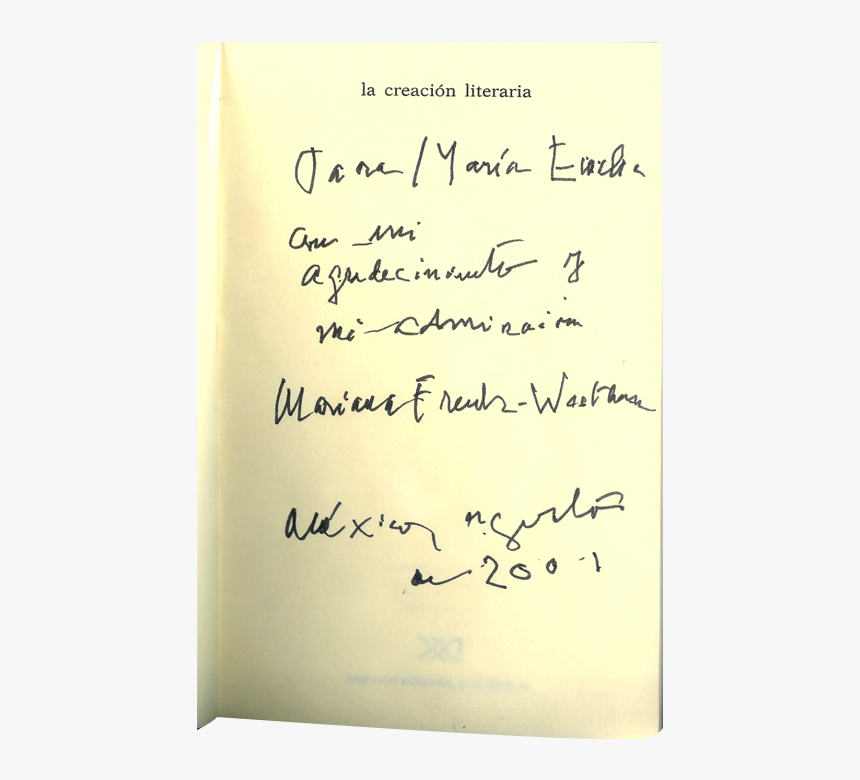 la creación literaria
Para María Emilia
con mi
agradecimiento y
mi admiración
Mariana Frenk-Westheim
México, agosto
de 2001